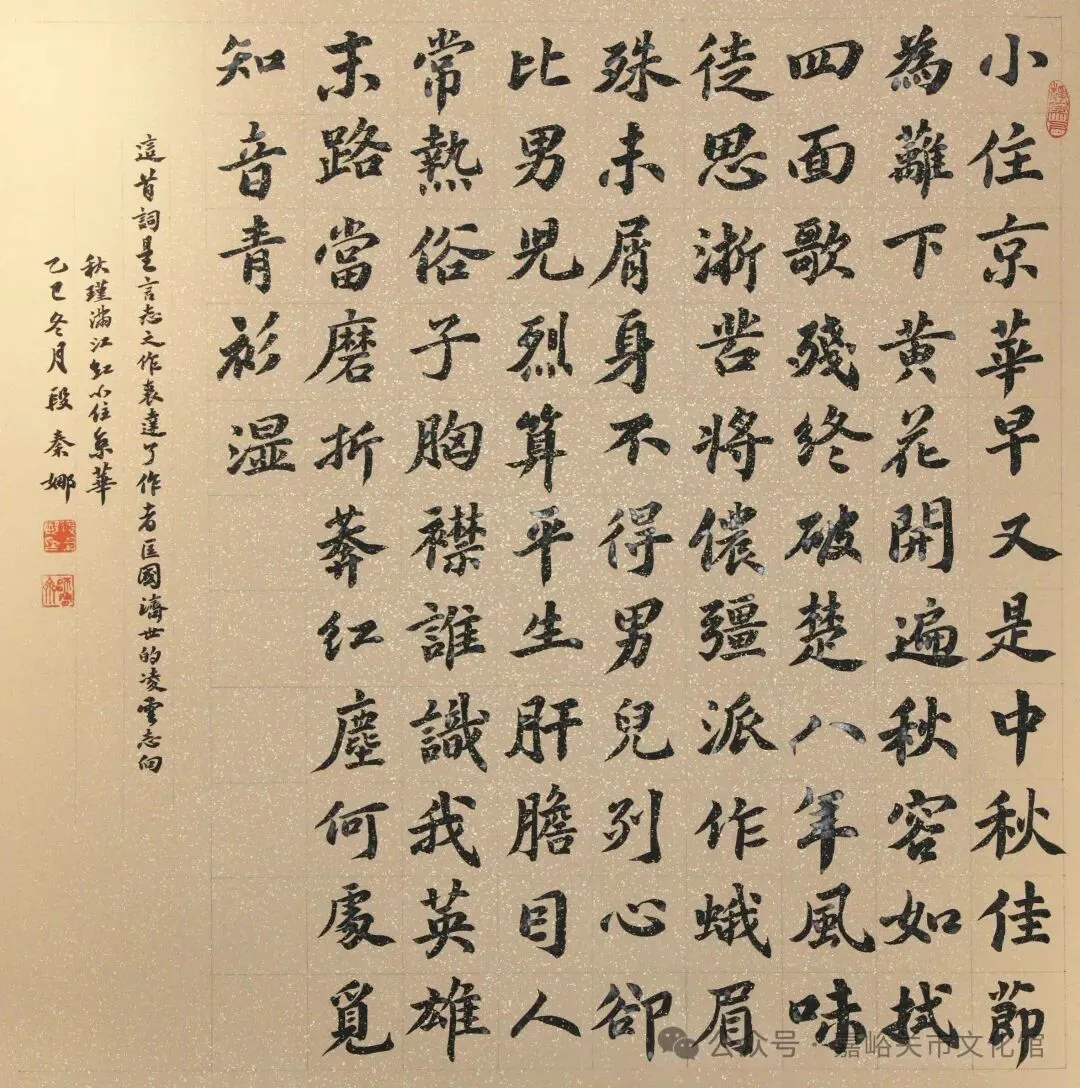 小住京華早又是中秋佳節
為蘺下黄花開遍秋容如拭
四面歌殘終破楚八年風味
徒思浙苦將儂彊派作蛾眉
殊未屑身不得男兒列心卻
比男児烈算平生肝膽因人
常熱俗子胸襟誰識我英雄
末路當磨折莽红塵何處覓
知音青衫湿
這首詞是言志之作表達了作者匡國濟世的凌雲志向
秋瑾滿江紅小住京華
乙巳冬月段秦娜
公众号 · 嘉峪关市文化馆